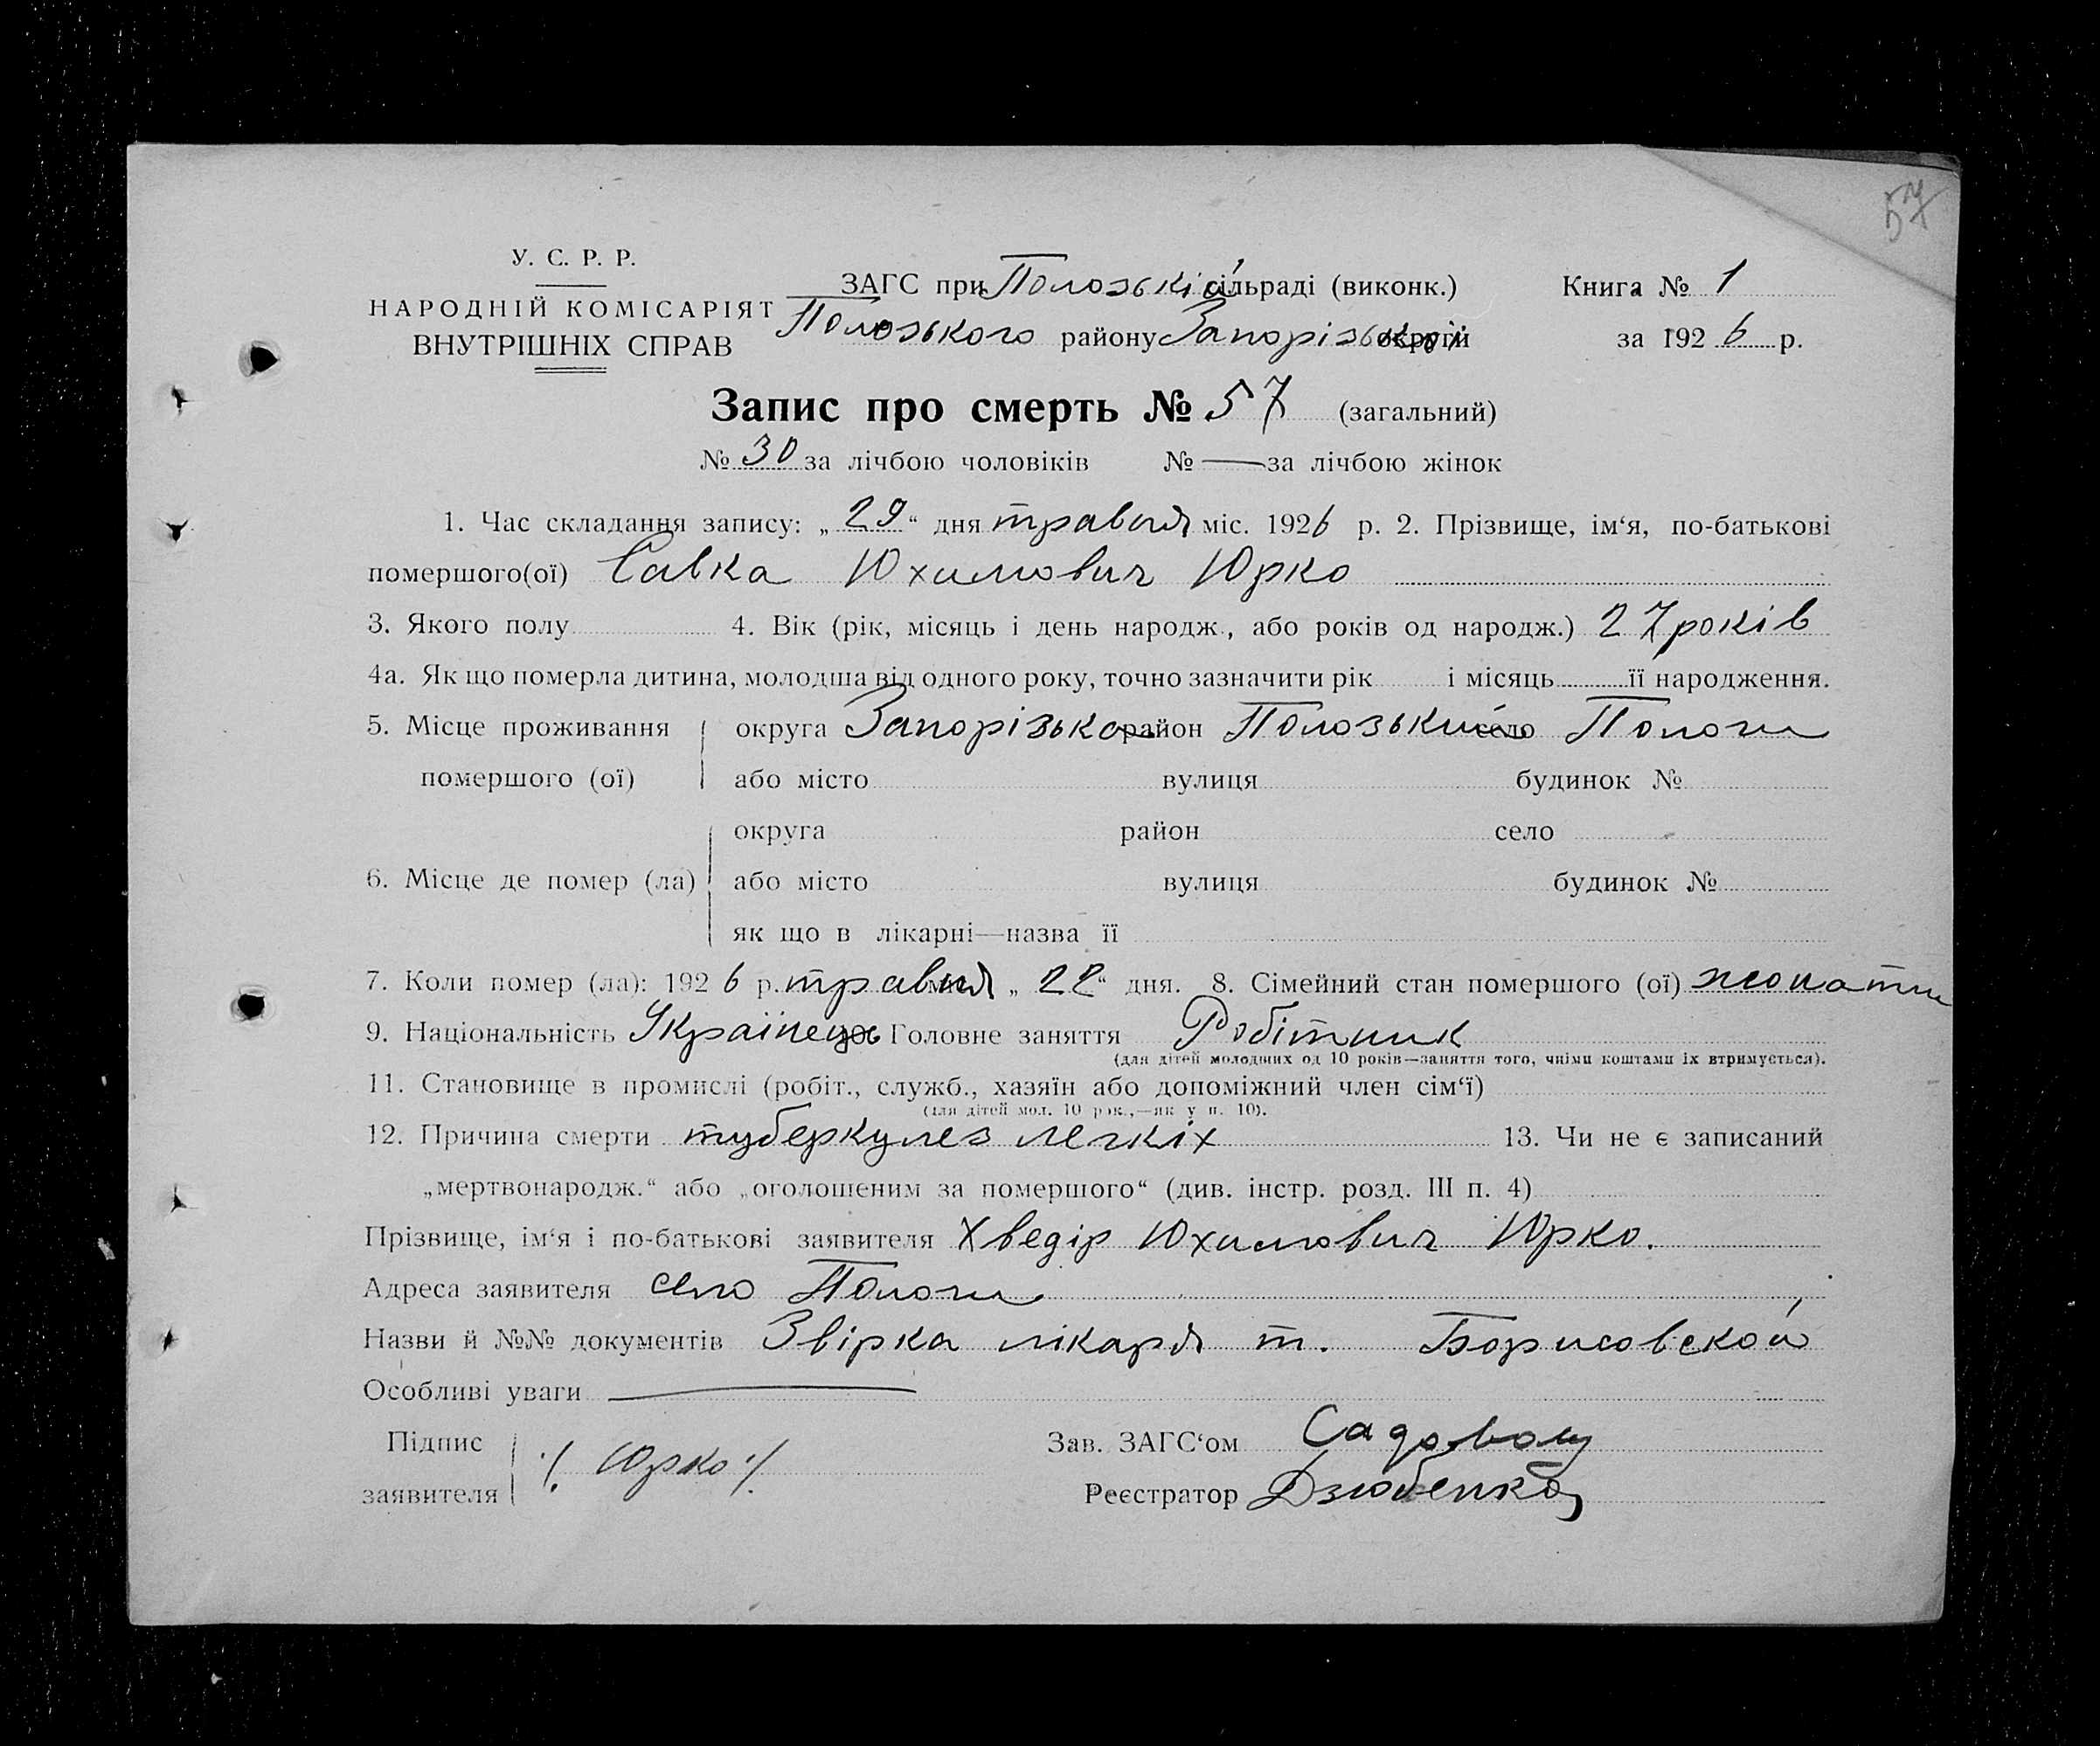 57
У. С. Р. Р.
НАРОДНІЙ КОМІСАРІЯТ
ВНУТРІШНІХ СПРАВ
ЗАГС при Полозькій сільраді (виконк.)
Полозького району Запорізької округи
Книга № 1
за 1926 р.
Запис про смерть № 57 (загальний)
№ 30 за лічбою чоловіків № — за лічбою жінок
1. Час складання запису: „29“ дня травня міс. 1926 р. 2. Прізвище, ім‘я, по-батькові
помершого(ої) Савка Юхимович Юрко
3. Якого полу 4. Вік (рік, місяць і день народж., або років од народж.) 27 років
4а. Як що померла дитина, молодша від одного року, точно зазначити рік і місяць її народження.
5. Місце проживання округа Запорізька район Полозький село Пологи
помершого (ої) або місто вулиця будинок №
округа район село
6. Місце де помер (ла) або місто вулиця будинок №
як що в лікарні—назва її
7. Коли помер (ла): 1926 р. травня „22“ дня. 8. Сімейний стан помершого (ої) жонати
9. Національність Українець Головне заняття Робітник
(для дітей молодших од 10 років—заняття того, чиїми коштами їх втримується).
11. Становище в промислі (робіт., служб., хазяїн або допоміжний член сім‘ї)
(для дітей мол. 10 рок.,—як у п. 10).
12. Причина смерти туберкулез легкіх 13. Чи не є записаний
„мертвонародж.“ або „оголошеним за помершого“ (див. інстр. розд. III п. 4)
Прізвище, ім‘я і по-батькові заявителя Хведір Юхимович Юрко.
Адреса заявителя село Пологи
Назви й №№ документів Звірка лікаря т. Борисовской
Особливі уваги —
Підпис
заявителя ./. Юрко ./.
Зав. ЗАГС‘ом
Реєстратор Дзюбенко